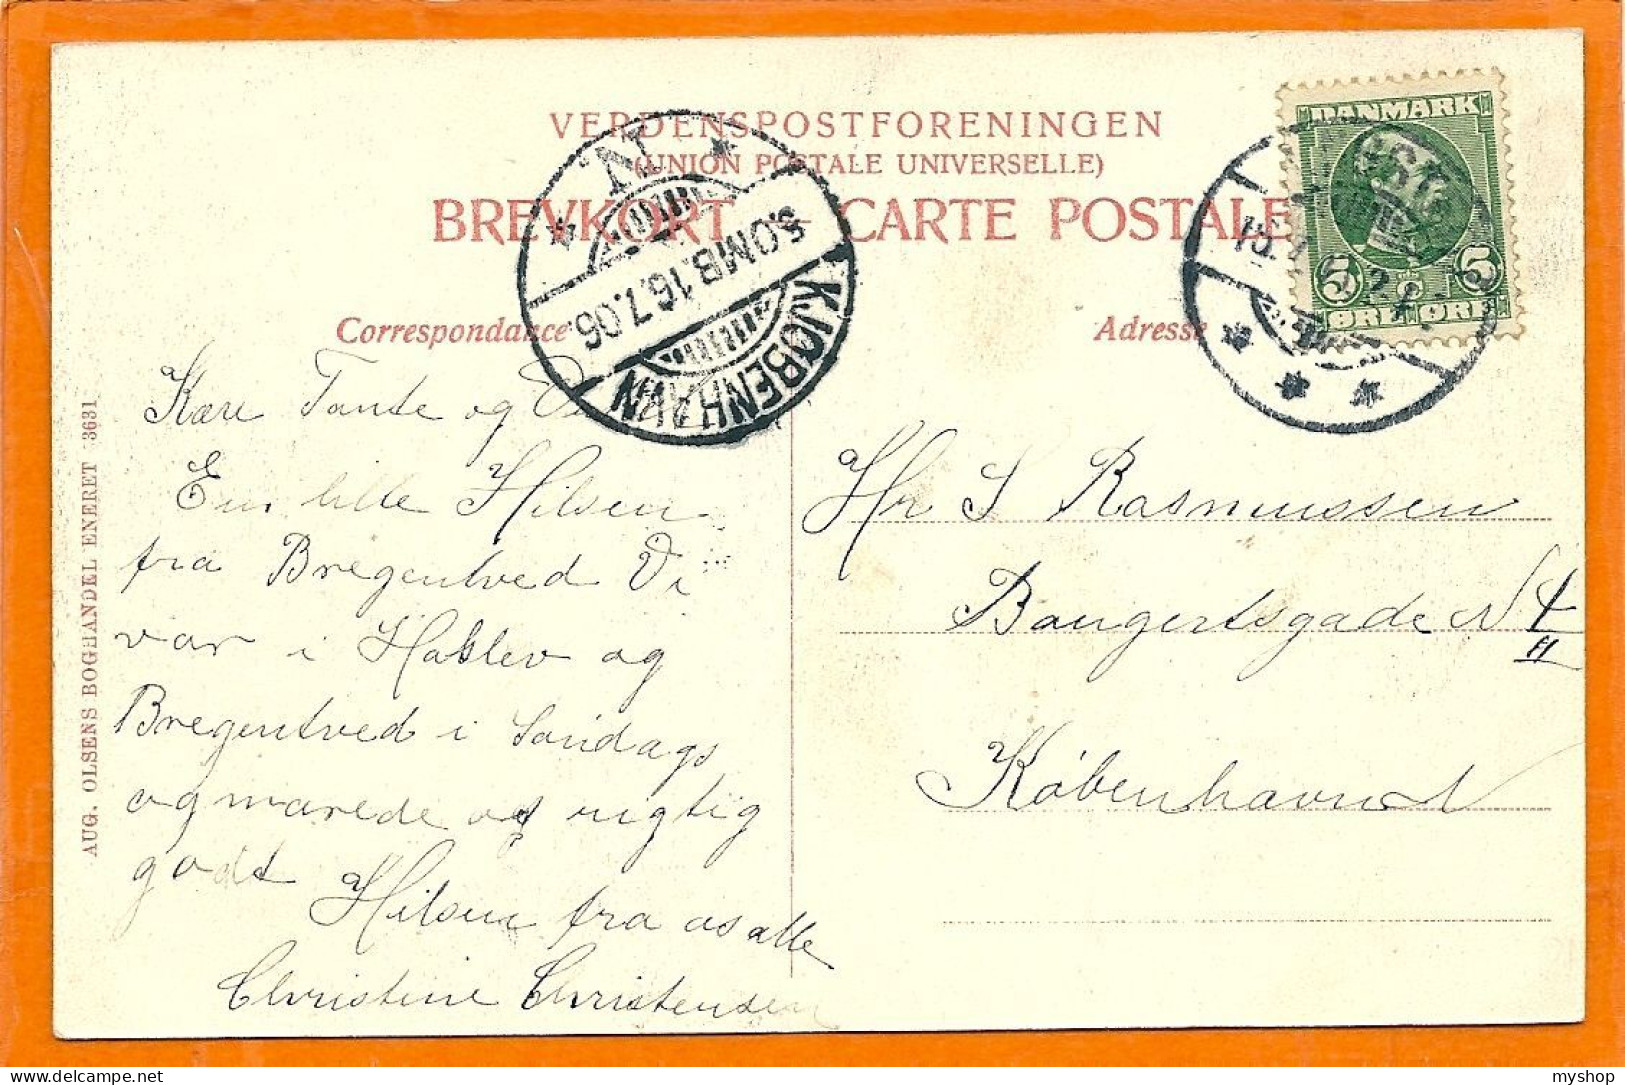 VERDENSPOSTFORENINGEN
(UNION POSTALE UNIVERSELLE)
BREVKORT — CARTE POSTALE
Correspondance
Adresse
DANMARK
5 5
ØRE ØRE
N.
5.OMB.16.7.06.
KJØBENHAVN
AUG. OLSENS BOGHANDEL ENERET 3631
Kære Tante og
En lille Hilsen
fra Bregentved Vi
var i Haslev og
Bregentved i Søndags
og morede os rigtig
godt
Hilsen fra os alle
Christine Christensen
Hr S Rasmussen
Baugertsgade N 4
II
København
myshop